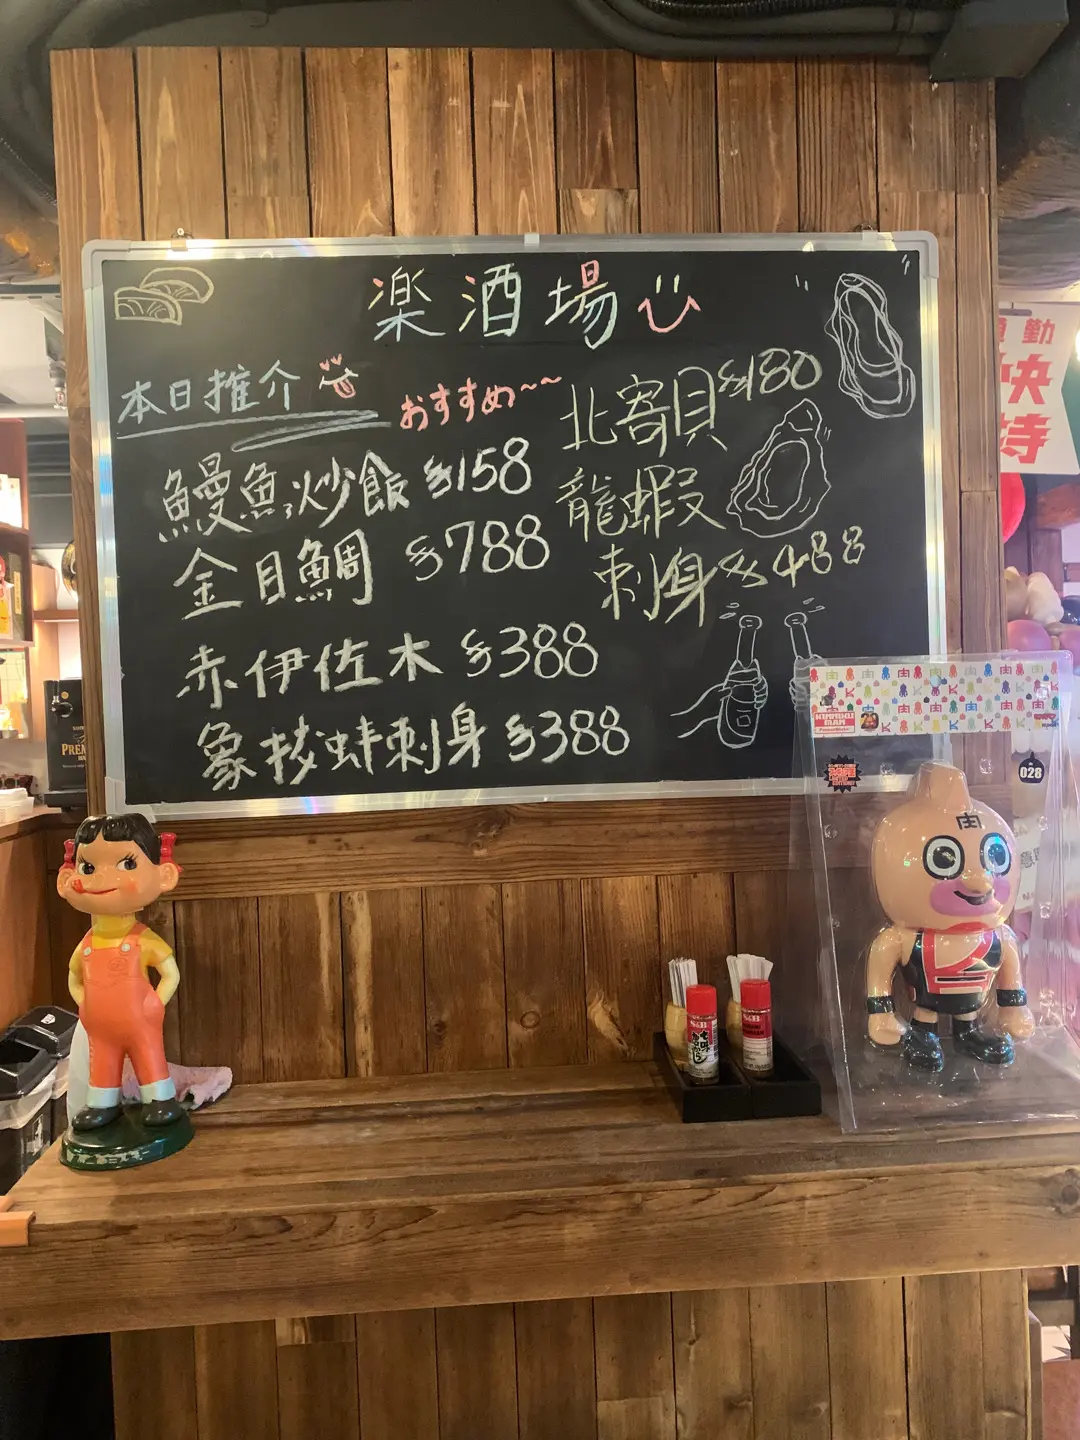 楽酒場
本日推介
おすすめ~~
鰻魚炒飯 $158
金目鯛 $788
赤伊佐木 $388
象拔蚌刺身 $388
北寄貝 $180
龍蝦
刺身 $488
勤
快
待
PREM
KINNIKU
MAN
028
肉
S&B
S&B